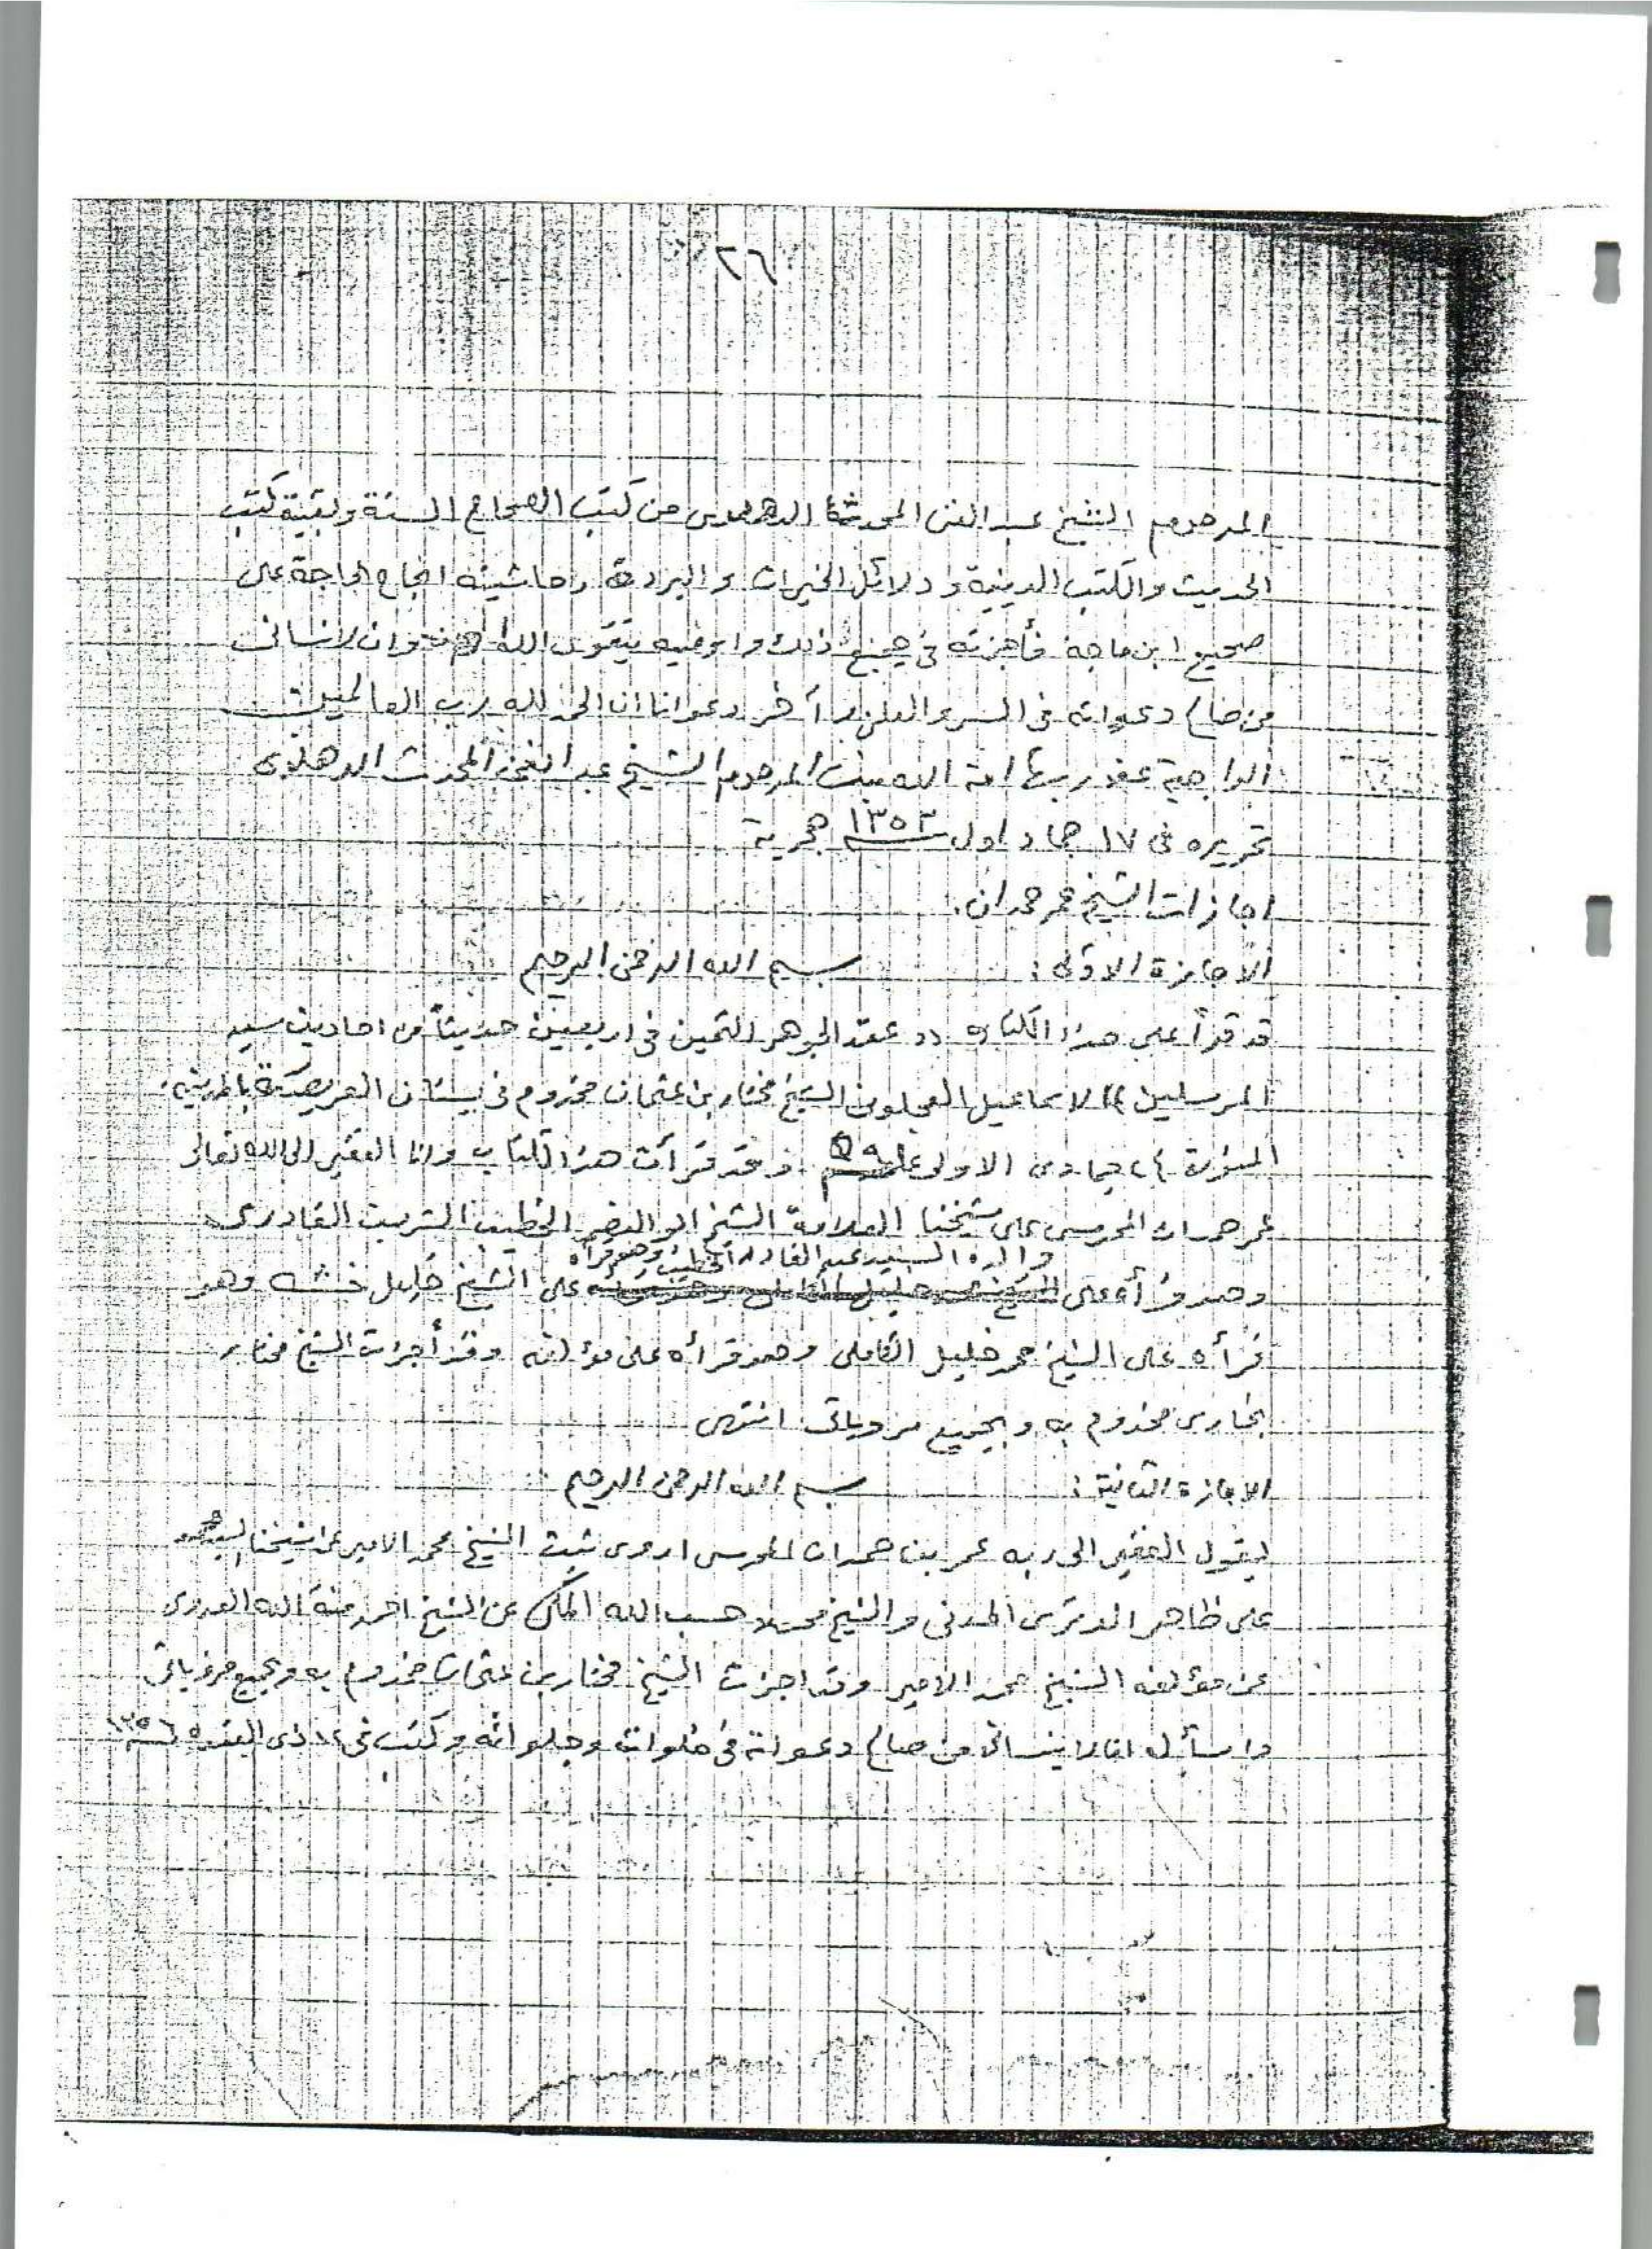 ٢٦
المرحوم الشيخ عبد الغنى المحدث الدهلوى من كتب الصحاح الستة وبقية كتب
الحديث والكتب الدينية و دلائل الخيرات والبردة وحاشيته انجاح الحاجة على
صحيح ابن ماجة فأجزته فى جميع ذلك واوصيه بتقوى الله وان لا ينسانى
من صالح دعواته فى السر والعلن وآخر دعوانا ان الحمد لله رب العالمين
الراجية عفو ربها امة الله بنت المرحوم الشيخ عبد الغنى المحدث الدهلوى
تحريره فى ١٧ جماد اول ١٣٥٣ هجرية
اجازات الشيخ عمر حمدان.
الاجازة الاولى: بسم الله الرحمن الرحيم
قد قرأ على هذا الكتاب (( عقد الجوهر الثمين فى اربعين حديثاً من احاديث سيد
المرسلين )) لاسماعيل العجلونى الشيخ مختار بن عثمان مخدوم فى بستان بالمدينة
المنورة جمادى الاولى وقد قرأت هذا الكتاب وانا الفقير الى الله تعالى
عمر حمدان المحرسى على شيخنا العلامة الشيخ ابو النصر الخطيب القادرى
والده السيد عبد القادر الخطيب وهو قرأه
وهو قرأه على على الشيخ خليل خشه وهو
قرأه على الشيخ محمد خليل الكاملى وهو قرأه على مؤلفه وقد أجزت الشيخ مختار
بخارى مخدوم به وبجميع مروياتى انتهى
الاجازة الثانية: بسم الله الرحمن الرحيم
يقول الفقير الى ربه عمر بن حمدان المحرسى اروى ثبت الشيخ محمد الامير عن شيخنا السيد محمد
على ظاهر الوترى المدنى والشيخ محمد حسب الله المكى عن الشيخ احمد منة الله العدوى
عن مؤلفه الشيخ محمد الامير وقد اجزت الشيخ مختار بن عثمان مخدوم به وبجميع مروياتى
واسأل ان لا ينسانى من صالح دعواته فى خلواته وجلواته وكتب فى ذى القعدة ١٣٥٦